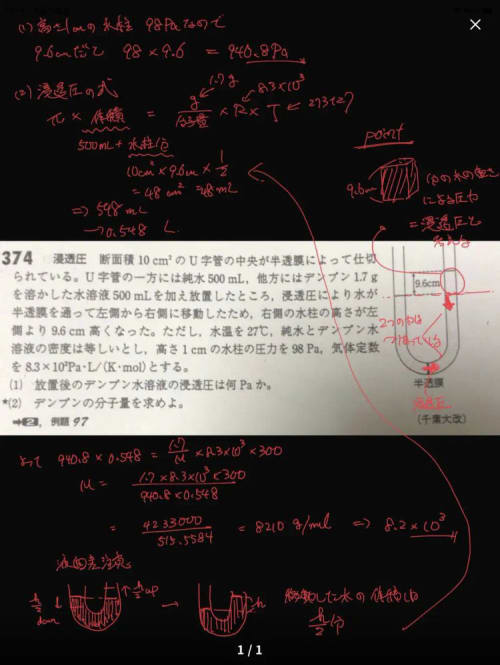 (1) 高さ1cmの水柱 98Paなので
9.6cmだと 98×9.6 = 940.8Pa
(2) 浸透圧の式
1.7g
8.3×10³
π × 体積 = g/分子量 × R × T ← 273+27
500mL + 水柱
10cm² × 9.6cm × 1/2
= 48cm³ = 48mL
⇒ 548mL
→ 0.548 L
point
9.6cm
による圧力
= 浸透圧と
374 浸透圧 断面積 10 cm² のU字管の中央が半透膜によって仕切
られている。U字管の一方には純水 500 mL、他方にはデンプン 1.7 g
を溶かした水溶液 500 mLを加え放置したところ、浸透圧により水が
半透膜を通って左側から右側に移動したため、右側の水柱の高さが左
側より 9.6 cm 高くなった。ただし、水温を27℃、純水とデンプン水
溶液の密度は等しいとし、高さ 1 cm の水柱の圧力を 98 Pa、気体定数
を 8.3×10³Pa·L/(K·mol)とする。
(1) 放置後のデンプン水溶液の浸透圧は何 Pa か。
*(2) デンプンの分子量を求めよ。
例題 97
9.6cm
2つの力は
つりあっている
半透膜
浸透圧
(千葉大改)
よって 940.8 × 0.548 = 1.7/M × 8.3×10³ × 300
M = 1.7×8.3×10³×300 / 940.8×0.548
= 4233000 / 515.5584 = 8210 g/mol ⇒ 8.2×10³
液面差注意
h/2 down
h/2 up
→
h
移動した水の体積は
h/2分
1 / 1